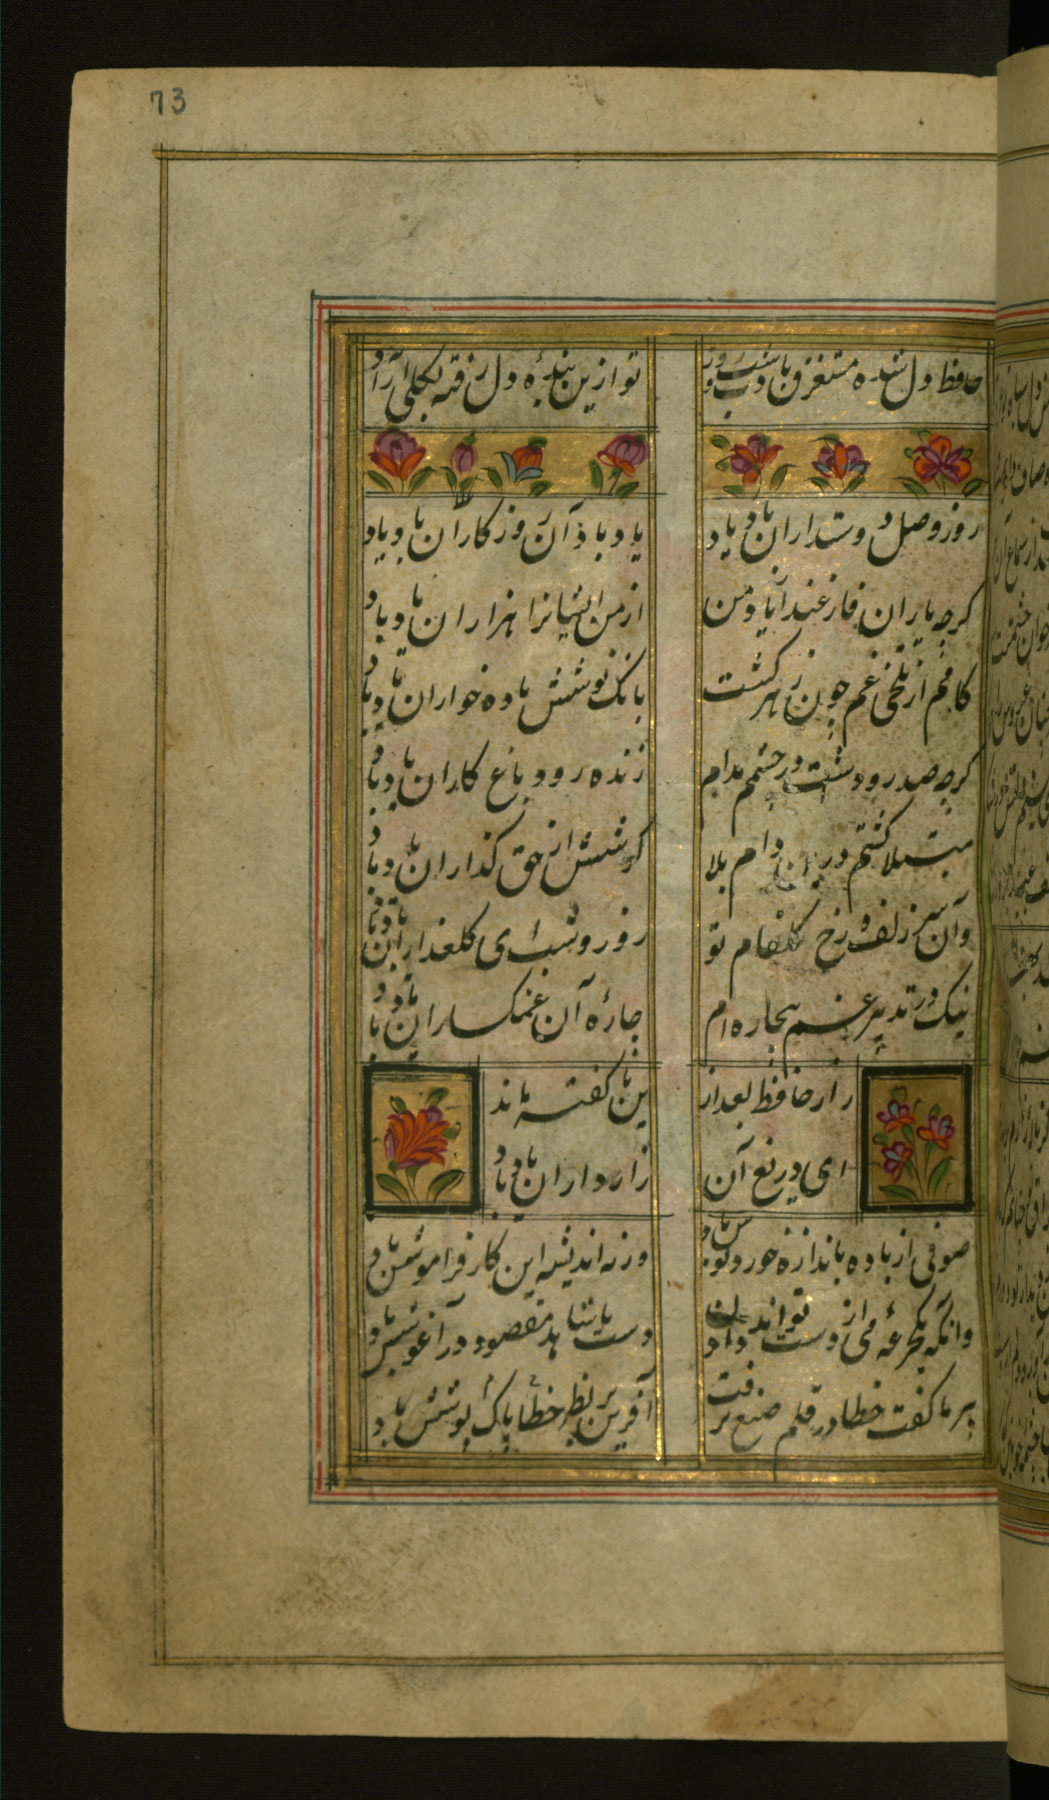 73
حافظ دل شده مستغرق یادت شب و روز
تو ازین بنده دل رفته بکلی آزاد
روز وصل دوستداران یاد باد
یاد باد آن روزکاران یاد باد
کرچه یاران فارغند از یاد من
از من ایشانرا هزاران یاد باد
کامم از تلخی غم چون زهر کشت
بانک نوشش باده خواران یاد باد
کرچه صد رودست در چشمم مدام
زنده رود و باغ کاران یاد باد
مبتلا کشتم درین دام بلا
کوشش آن حق کذاران یاد باد
وآن سر زلف و رخ کلفام تو
روز و شب ای کلعذاران یاد باد
نیک در تدبیر غم بیچاره ام
چاره آن غمکساران یاد باد
راز حافظ بعد از
ین ناکفته ماند
ای دریغ آن
رازداران یاد باد
صوفی ار باده باندازه خورد نوشش باد
ورنه اندیشه این کار فراموشش باد
وانکه یکجرعه می از دست تواند دادن
دست با شاهد مقصود در آغوشش باد
پیر ما کفت خطا در قلم صنع نرفت
آفرین بر نظر خطا پاک پوشش باد